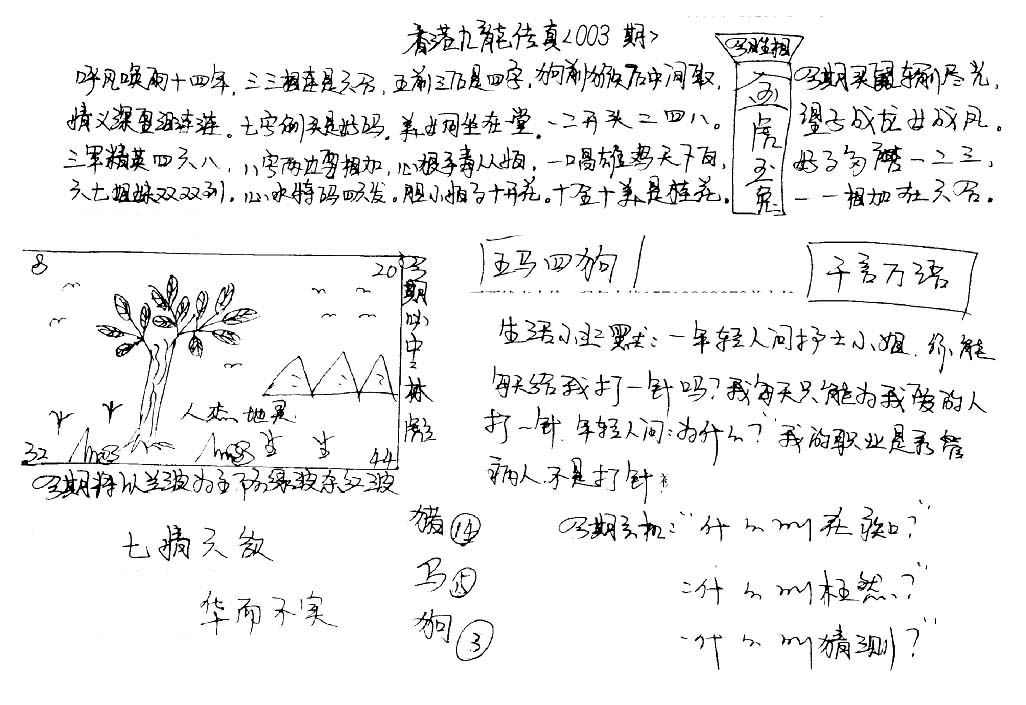 香港九龍传真<003期>
呼风唤雨十四年,三三相连是六合,五前三后是四字,狗前猴后中间取,
情义深重,七字倒头是好码。美女同坐在堂。一二开头二四八。
三军精英四六八,八字两边要相加,心狠手毒人人怕,一唱高雄鸡天下白,
六七相妹双双到,心水特码四六发。胆小怕马十开花。十五十美是桂花。
虎
玉
兔
望子成龙女成凤。
一二三,
一一相加在六合。
8
20
人杰地灵
32
44
期
中
林
五马四狗
千言万语
生活小幽默:一年轻人问护士小姐,你能
每天给我打一针吗?我每天只能为我爱的人
打一针,年轻人问:为什么?我的职业是看管
病人,不是打针。
期将以兰波为主防绿波杀红波
七情六欲
华而不实
猪⑭
马⑮
狗③
期玄机:"什么叫在?"
:什么叫枉然?"
什么叫猜测?"